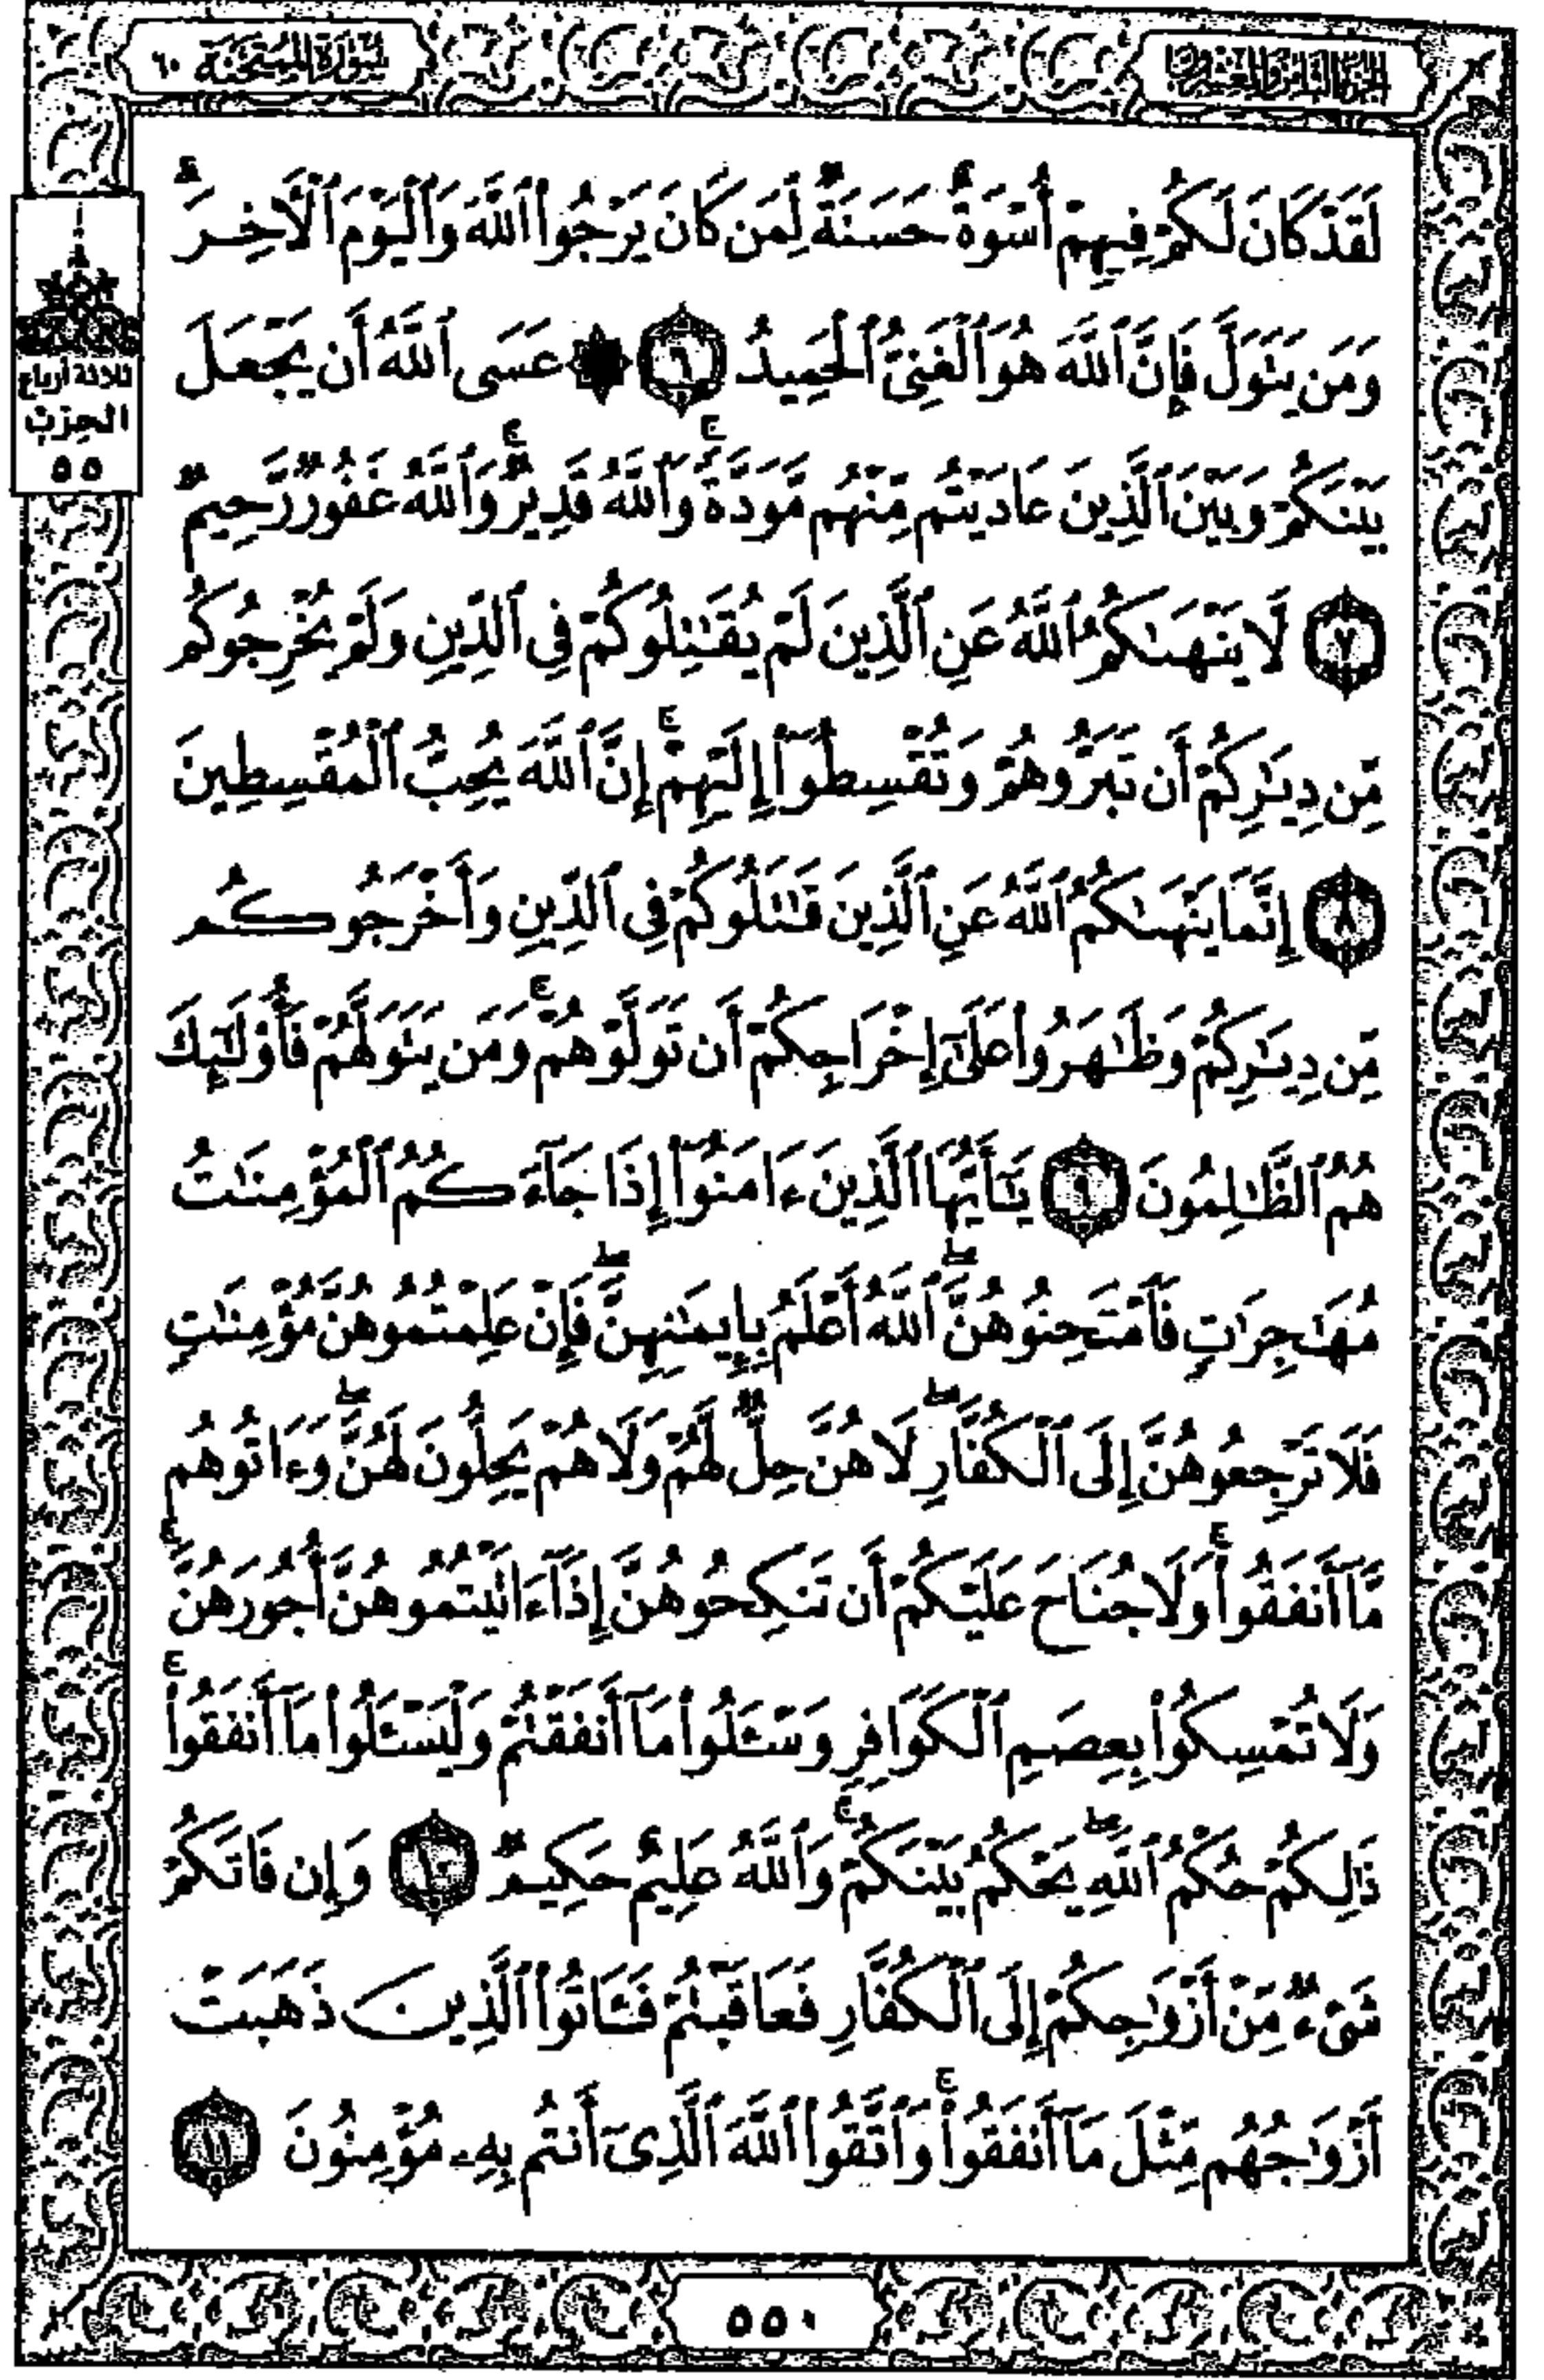 الجزء الثامن والعشرون
سورة الممتحنة ٦٠
لَقَدْ كَانَ لَكُمْ فِيهِمْ أُسْوَةٌ حَسَنَةٌ لِّمَن كَانَ يَرْجُوا۟ ٱللَّهَ وَٱلْيَوْمَ ٱلْـَٔاخِرَ ۚ
وَمَن يَتَوَلَّ فَإِنَّ ٱللَّهَ هُوَ ٱلْغَنِىُّ ٱلْحَمِيدُ ٦ ۞ عَسَى ٱللَّهُ أَن يَجْعَلَ
بَيْنَكُمْ وَبَيْنَ ٱلَّذِينَ عَادَيْتُم مِّنْهُم مَّوَدَّةً ۚ وَٱللَّهُ قَدِيرٌ ۚ وَٱللَّهُ غَفُورٌ رَّحِيمٌ
٧ لَّا يَنْهَىٰكُمُ ٱللَّهُ عَنِ ٱلَّذِينَ لَمْ يُقَـٰتِلُوكُمْ فِى ٱلدِّينِ وَلَمْ يُخْرِجُوكُم
مِّن دِيَـٰرِكُمْ أَن تَبَرُّوهُمْ وَتُقْسِطُوٓا۟ إِلَيْهِمْ ۚ إِنَّ ٱللَّهَ يُحِبُّ ٱلْمُقْسِطِينَ
٨ إِنَّمَا يَنْهَىٰكُمُ ٱللَّهُ عَنِ ٱلَّذِينَ قَـٰتَلُوكُمْ فِى ٱلدِّينِ وَأَخْرَجُوكُم
مِّن دِيَـٰرِكُمْ وَظَـٰهَرُوا۟ عَلَىٰٓ إِخْرَاجِكُمْ أَن تَوَلَّوْهُمْ ۚ وَمَن يَتَوَلَّهُمْ فَأُو۟لَـٰٓئِكَ
هُمُ ٱلظَّـٰلِمُونَ ٩ يَـٰٓأَيُّهَا ٱلَّذِينَ ءَامَنُوٓا۟ إِذَا جَآءَكُمُ ٱلْمُؤْمِنَـٰتُ
مُهَـٰجِرَٰتٍ فَٱمْتَحِنُوهُنَّ ۖ ٱللَّهُ أَعْلَمُ بِإِيمَـٰنِهِنَّ ۖ فَإِنْ عَلِمْتُمُوهُنَّ مُؤْمِنَـٰتٍ
فَلَا تَرْجِعُوهُنَّ إِلَى ٱلْكُفَّارِ ۖ لَا هُنَّ حِلٌّ لَّهُمْ وَلَا هُمْ يَحِلُّونَ لَهُنَّ ۖ وَءَاتُوهُم
مَّآ أَنفَقُوا۟ ۚ وَلَا جُنَاحَ عَلَيْكُمْ أَن تَنكِحُوهُنَّ إِذَآ ءَاتَيْتُمُوهُنَّ أُجُورَهُنَّ ۚ
وَلَا تُمْسِكُوا۟ بِعِصَمِ ٱلْكَوَافِرِ وَسْـَٔلُوا۟ مَآ أَنفَقْتُمْ وَلْيَسْـَٔلُوا۟ مَآ أَنفَقُوا۟ ۚ
ذَٰلِكُمْ حُكْمُ ٱللَّهِ ۖ يَحْكُمُ بَيْنَكُمْ ۚ وَٱللَّهُ عَلِيمٌ حَكِيمٌ ١٠ وَإِن فَاتَكُمْ
شَىْءٌ مِّنْ أَزْوَٰجِكُمْ إِلَى ٱلْكُفَّارِ فَعَاقَبْتُمْ فَـَٔاتُوا۟ ٱلَّذِينَ ذَهَبَتْ
أَزْوَٰجُهُم مِّثْلَ مَآ أَنفَقُوا۟ ۚ وَٱتَّقُوا۟ ٱللَّهَ ٱلَّذِىٓ أَنتُم بِهِۦ مُؤْمِنُونَ ١١
ثلاثة أرباع
الحزب
٥٥
٥٥٠